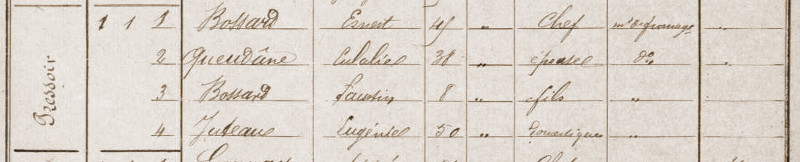 Pressoir
1 1 1 Bossard Ernest 45 " Chef md de fromage "
2 Queudâne Eulalie 38 " épouse do "
3 Bossard Faustin 8 " fils "
4 Juteau Eugénie 50 " Domestique "